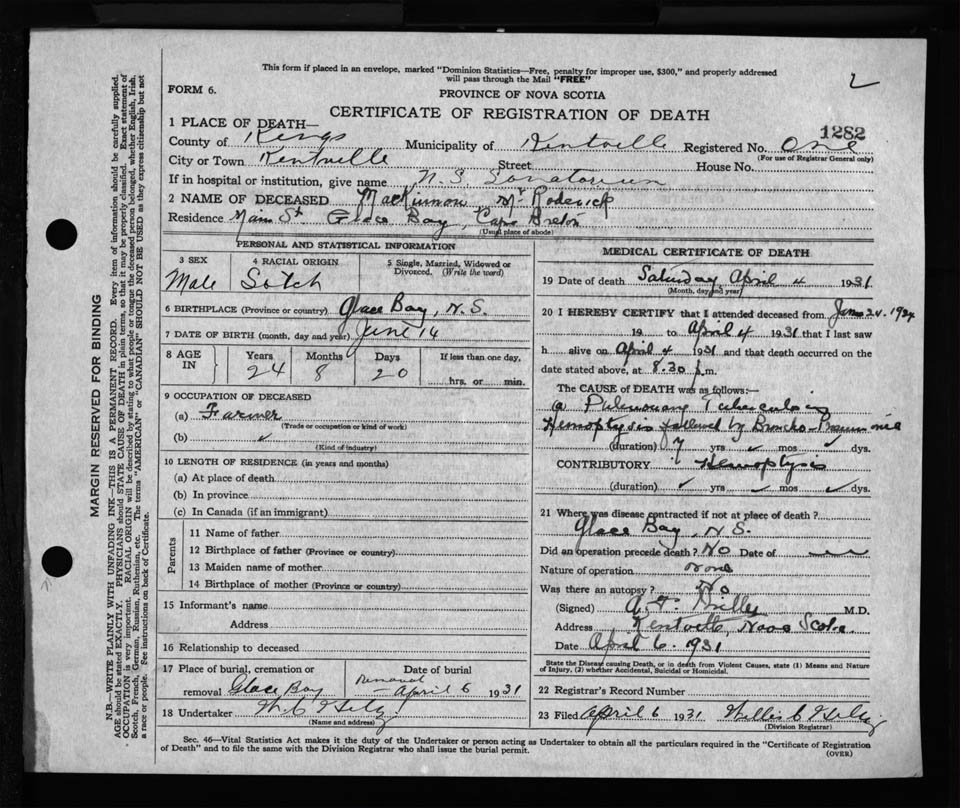 This form if placed in an envelope, marked "Dominion Statistics—Free, penalty for improper use, $300," and properly addressed
will pass through the Mail "FREE"
2
FORM 6.
PROVINCE OF NOVA SCOTIA
CERTIFICATE OF REGISTRATION OF DEATH
1282
1 PLACE OF DEATH—
County of Kings Municipality of Kentville Registered No. One
(For use of Registrar General only)
City or Town Kentville Street House No.
If in hospital or institution, give name N.S. Sanatorium
2 NAME OF DECEASED MacKinnon Mr Roderick
Residence Main St Glace Bay, Cape Breton
(Usual place of abode)
PERSONAL AND STATISTICAL INFORMATION
3 SEX
Male
4 RACIAL ORIGIN
Sotch
5 Single, Married, Widowed or
Divorced. (Write the word)
6 BIRTHPLACE (Province or country) Glace Bay, N.S.
7 DATE OF BIRTH (month, day and year) June 14
8 AGE
IN
Years Months Days If less than one day,
24 8 20
hrs. or min.
9 OCCUPATION OF DECEASED
(a) Farmer
(Trade or occupation or kind of work)
(b)
(Kind of industry)
10 LENGTH OF RESIDENCE (in years and months)
(a) At place of death
(b) In province
(c) In Canada (if an immigrant)
Parents
11 Name of father
12 Birthplace of father (Province or country)
13 Maiden name of mother
14 Birthplace of mother (Province or country)
15 Informant's name
Address
16 Relationship to deceased
17 Place of burial, cremation or Date of burial
removal Glace Bay Removal April 6 1931
18 Undertaker
(Name and address)
MEDICAL CERTIFICATE OF DEATH
19 Date of death Saturday April 4 1931
(Month, day and year)
20 I HEREBY CERTIFY that I attended deceased from 24, 19
19 to April 4 1931 that I last saw
h alive on April 4 1931 and that death occurred on
date stated above, at 8.30 p.m.
The CAUSE of DEATH was as follows:—
Pulmonary Tuberculosis
Hemoptysis followed by Broncho-Pneumonia
(duration) 7 yrs mos dys.
CONTRIBUTORY Hemoptysis
(duration) yrs mos dys.
21 Where was disease contracted if not at place of death?
Glace Bay, N.S.
Did an operation precede death? No Date of
Nature of operation none
Was there an autopsy? No
(Signed) A.F. Miller M.D.
Address Kentville, Nova Scotia.
Date April 6, 1931
State the Disease causing Death, or in death from Violent Causes, state (1) Means and Nature
of Injury, (2) whether Accidental, Suicidal or Homicidal.
22 Registrar's Record Number
23 Filed April 6 1931
(Division Registrar)
Sec. 46—Vital Statistics Act makes it the duty of the Undertaker or person acting as Undertaker to obtain all the particulars required in the "Certificate of Registration
of Death" and to file the same with the Division Registrar who shall issue the burial permit.
(OVER)
MARGIN RESERVED FOR BINDING
N.B.—WRITE PLAINLY WITH UNFADING INK—THIS IS A PERMANENT RECORD. Every item of information should be carefully supplied.
AGE should be stated EXACTLY. PHYSICIANS should STATE CAUSE OF DEATH in plain terms, so that it may be properly classified. Exact statement of
OCCUPATION is very important. RACIAL ORIGIN will be described by stating to what people or tongue the deceased person belonged, whether English, Irish,
Scotch, French, German, Russian, Ruthenian, etc. The terms "AMERICAN" or "CANADIAN" SHOULD NOT BE USED as they express citizenship but not
a race or people. See instructions on back of Certificate.